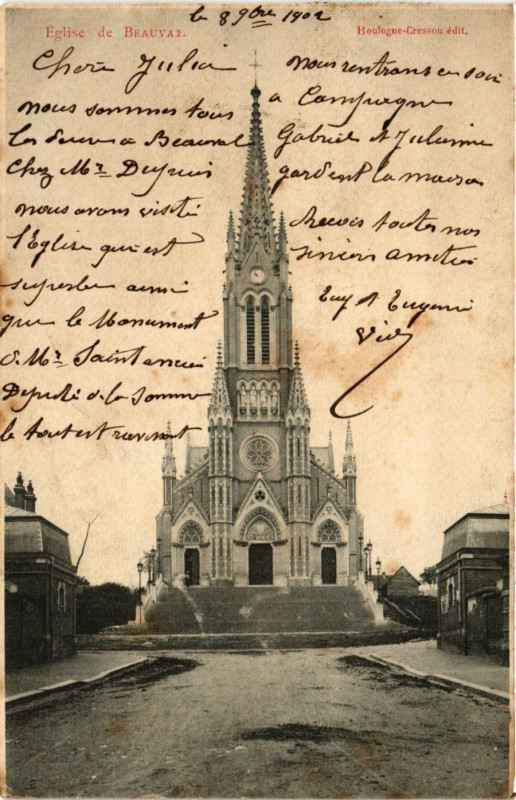 le 8 9bre 1902
Eglise de BEAUVAL.
Boulogne-Cresson édit.
Chère Julia
nous sommes tous
les deux a Beauval
chez Mr Dupuis
nous avons visité
l'Eglise qui est
superbe ainsi
que le Monument
d. Mr Saint
Député d. la Somme
le tout est ravissant
nous rentrons ce soir
a Compiegne
Gabriel et Julienne
gardent la maison
Recois toutes nos
sincères amitiés
et Eugenie